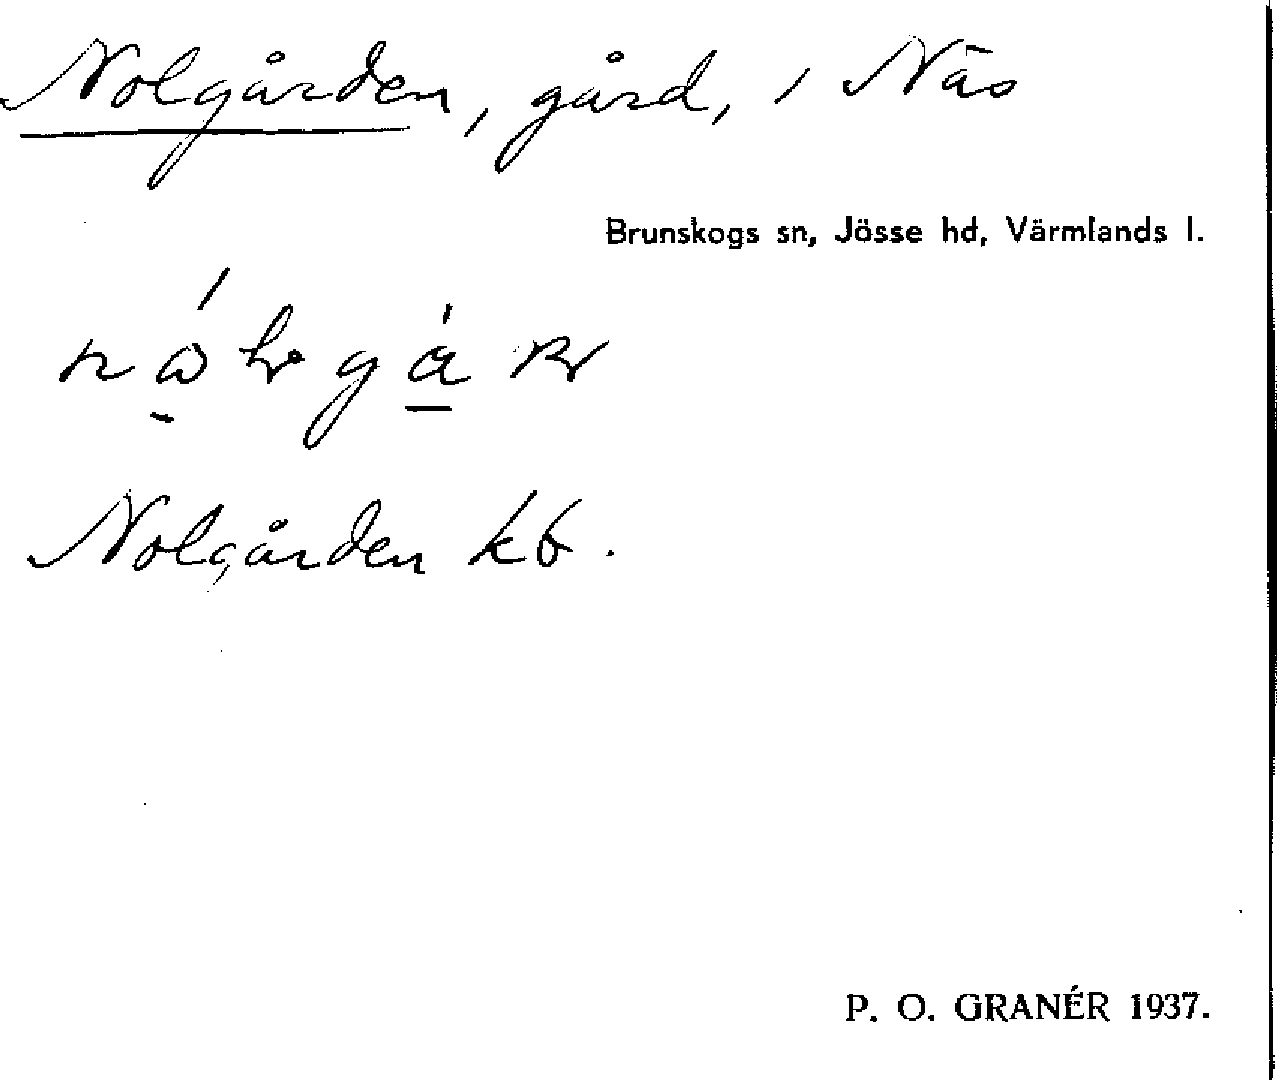 Nolgården, gård, i Näs
Brunskogs sn, Jösse hd, Värmlands l.
Nolgården kb.
P. O. GRANÉR 1937.